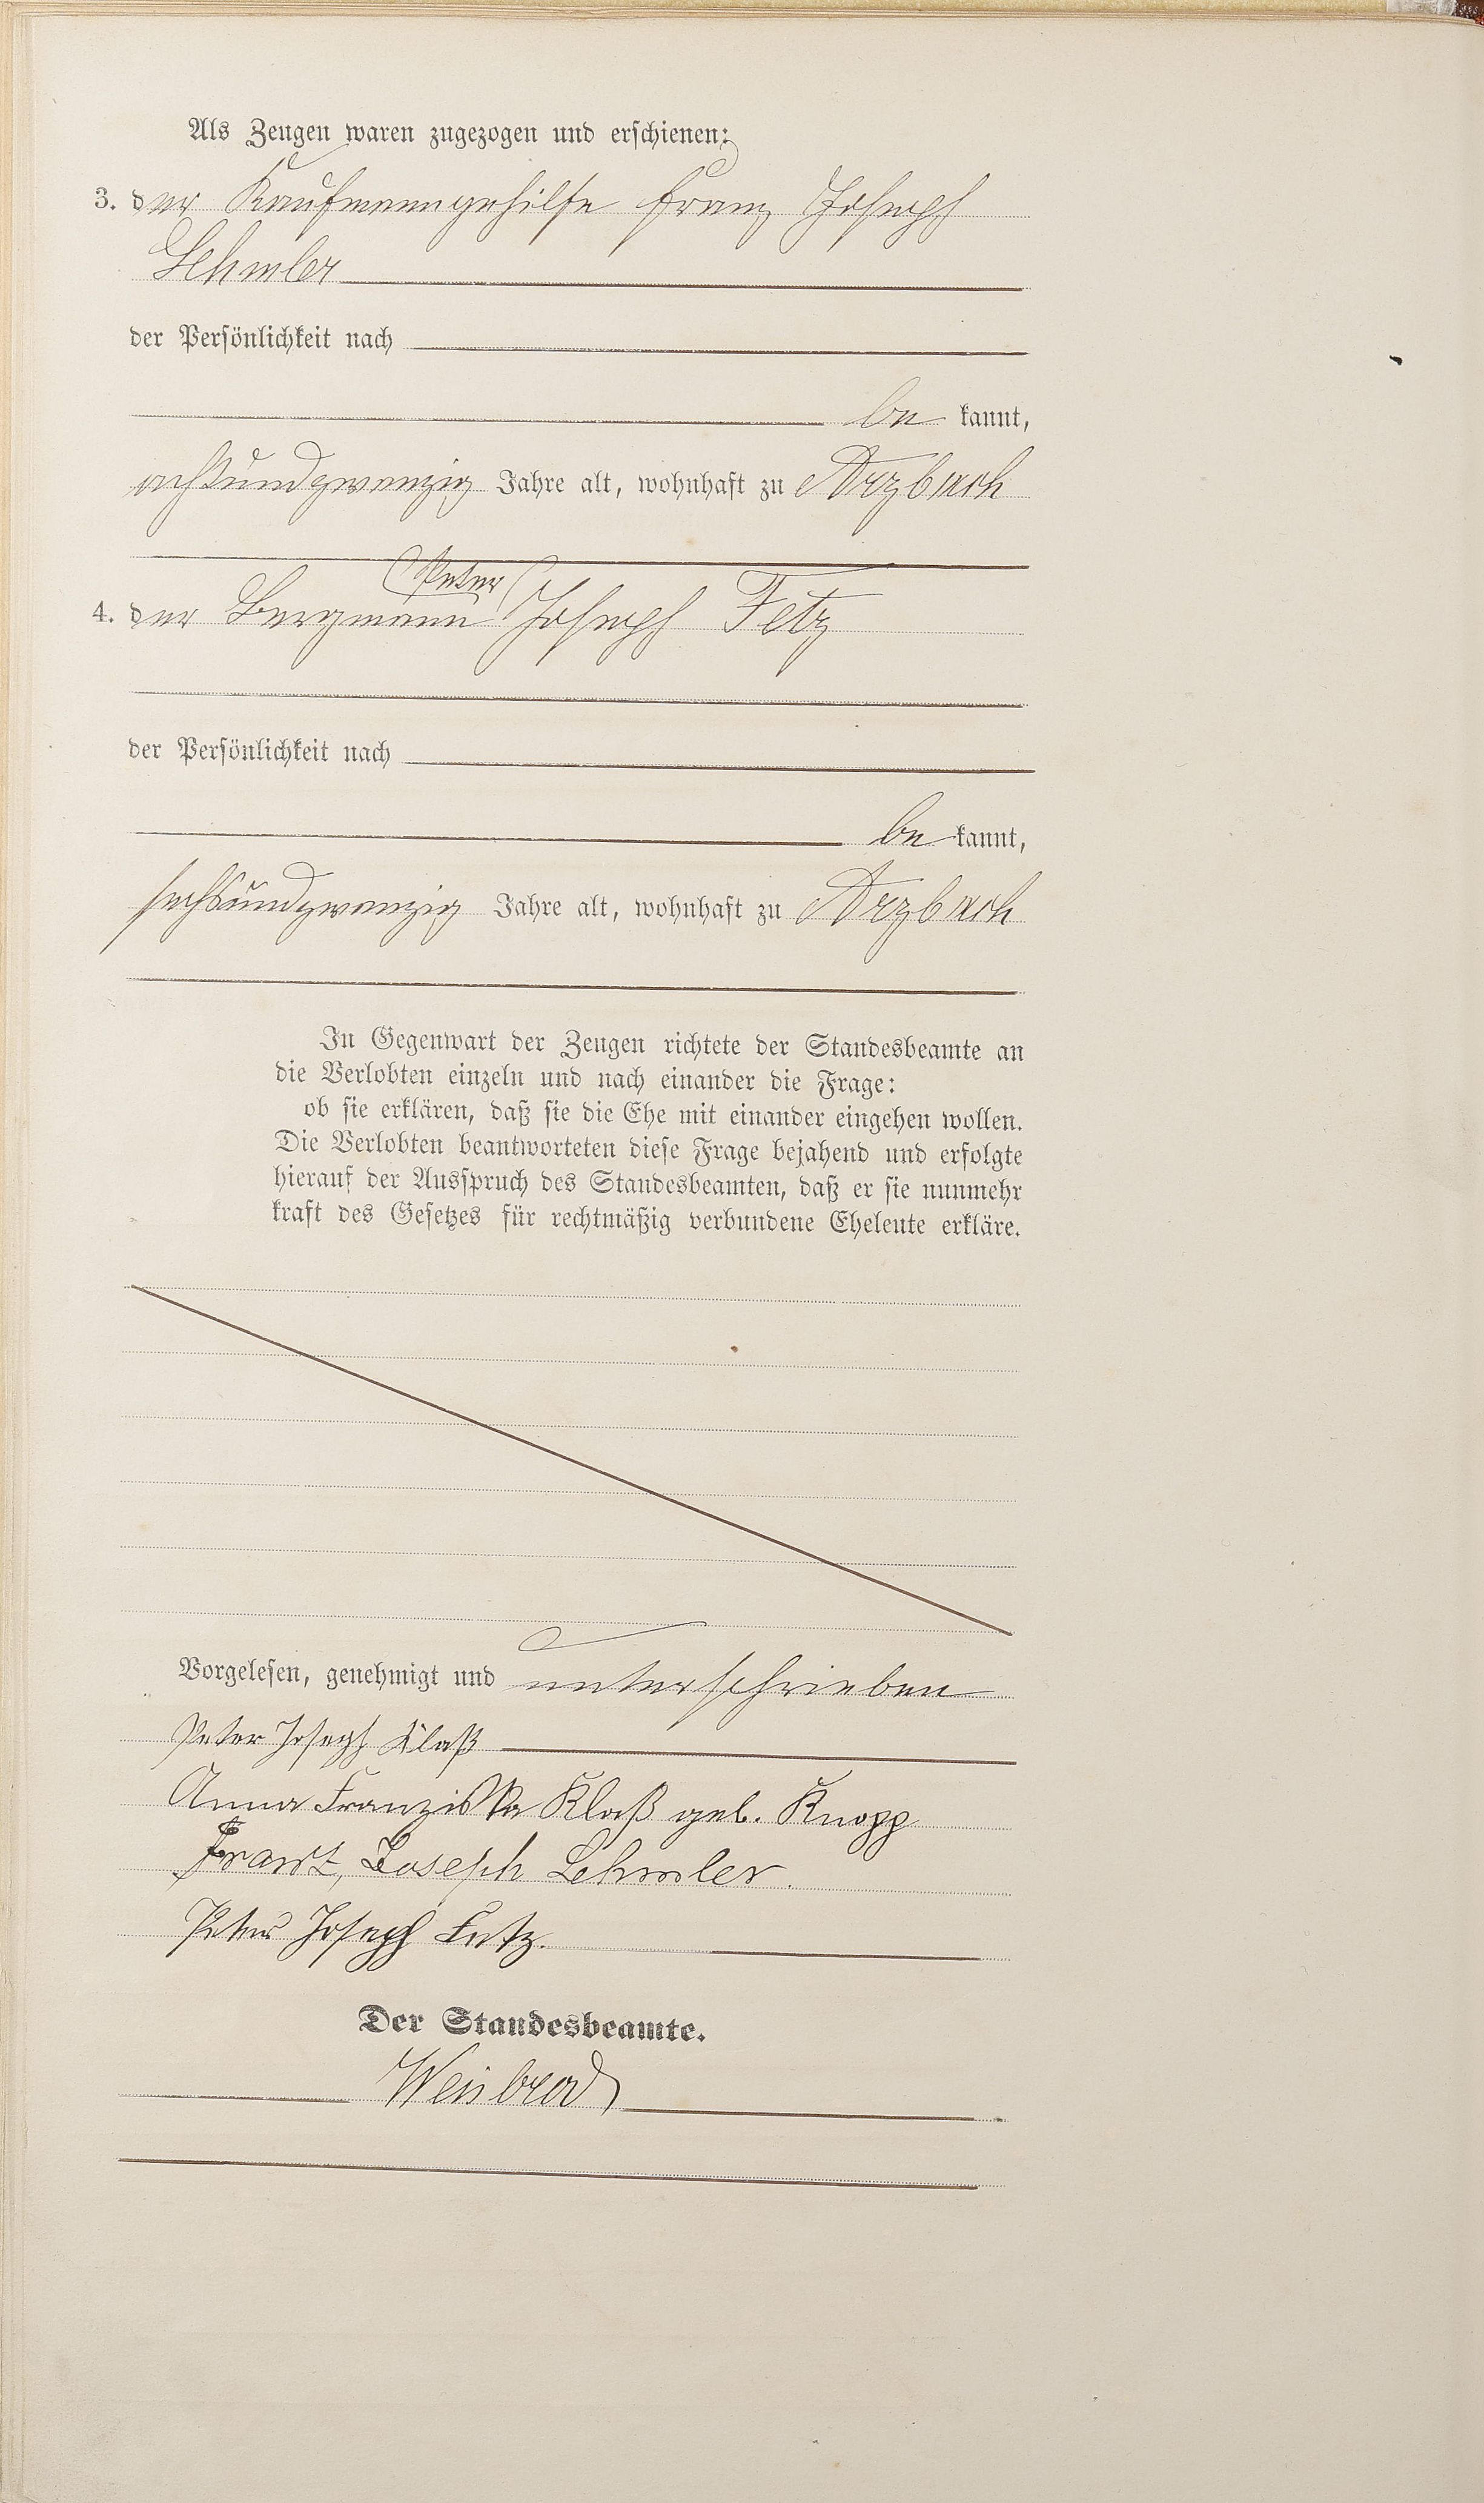 Als Zeugen waren zugezogen und erschienen:
3. der Kaufmanngehilfe Franz Joseph
Lehmler
der Persönlichkeit nach
be kannt,
achtundzwanzig Jahre alt, wohnhaft zu Arzbach
Peter
4. der Bergmann Joseph Fetz
der Persönlichkeit nach
be kannt,
sechsundzwanzig Jahre alt, wohnhaft zu Arzbach
In Gegenwart der Zeugen richtete der Standesbeamte an
die Verlobten einzeln und nach einander die Frage:
ob sie erklären, daß sie die Ehe mit einander eingehen wollen.
Die Verlobten beantworteten diese Frage bejahend und erfolgte
hierauf der Ausspruch des Standesbeamten, daß er sie nunmehr
kraft des Gesetzes für rechtmäßig verbundene Eheleute erkläre.
Vorgelesen, genehmigt und unterschrieben
Peter Joseph Klaß
Anna Franziska Klaß geb. Knopp
Franz Joseph Lehmler.
Peter Joseph Fetz.
Der Standesbeamte.
Weisbrod